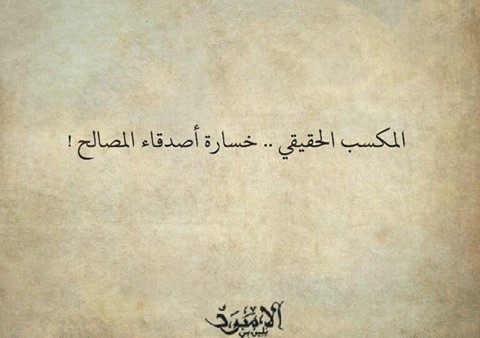 المكسب الحقيقي .. خسارة أصدقاء المصالح !